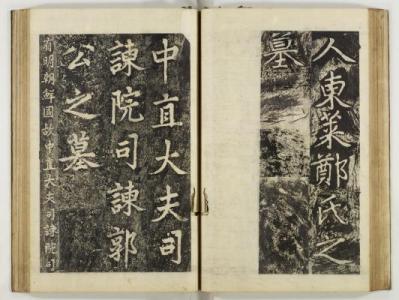 人東萊鄭氏之
墓
中直大夫司
諫院司諫郭
公之墓
有明朝鮮國故中直大夫司諫院司